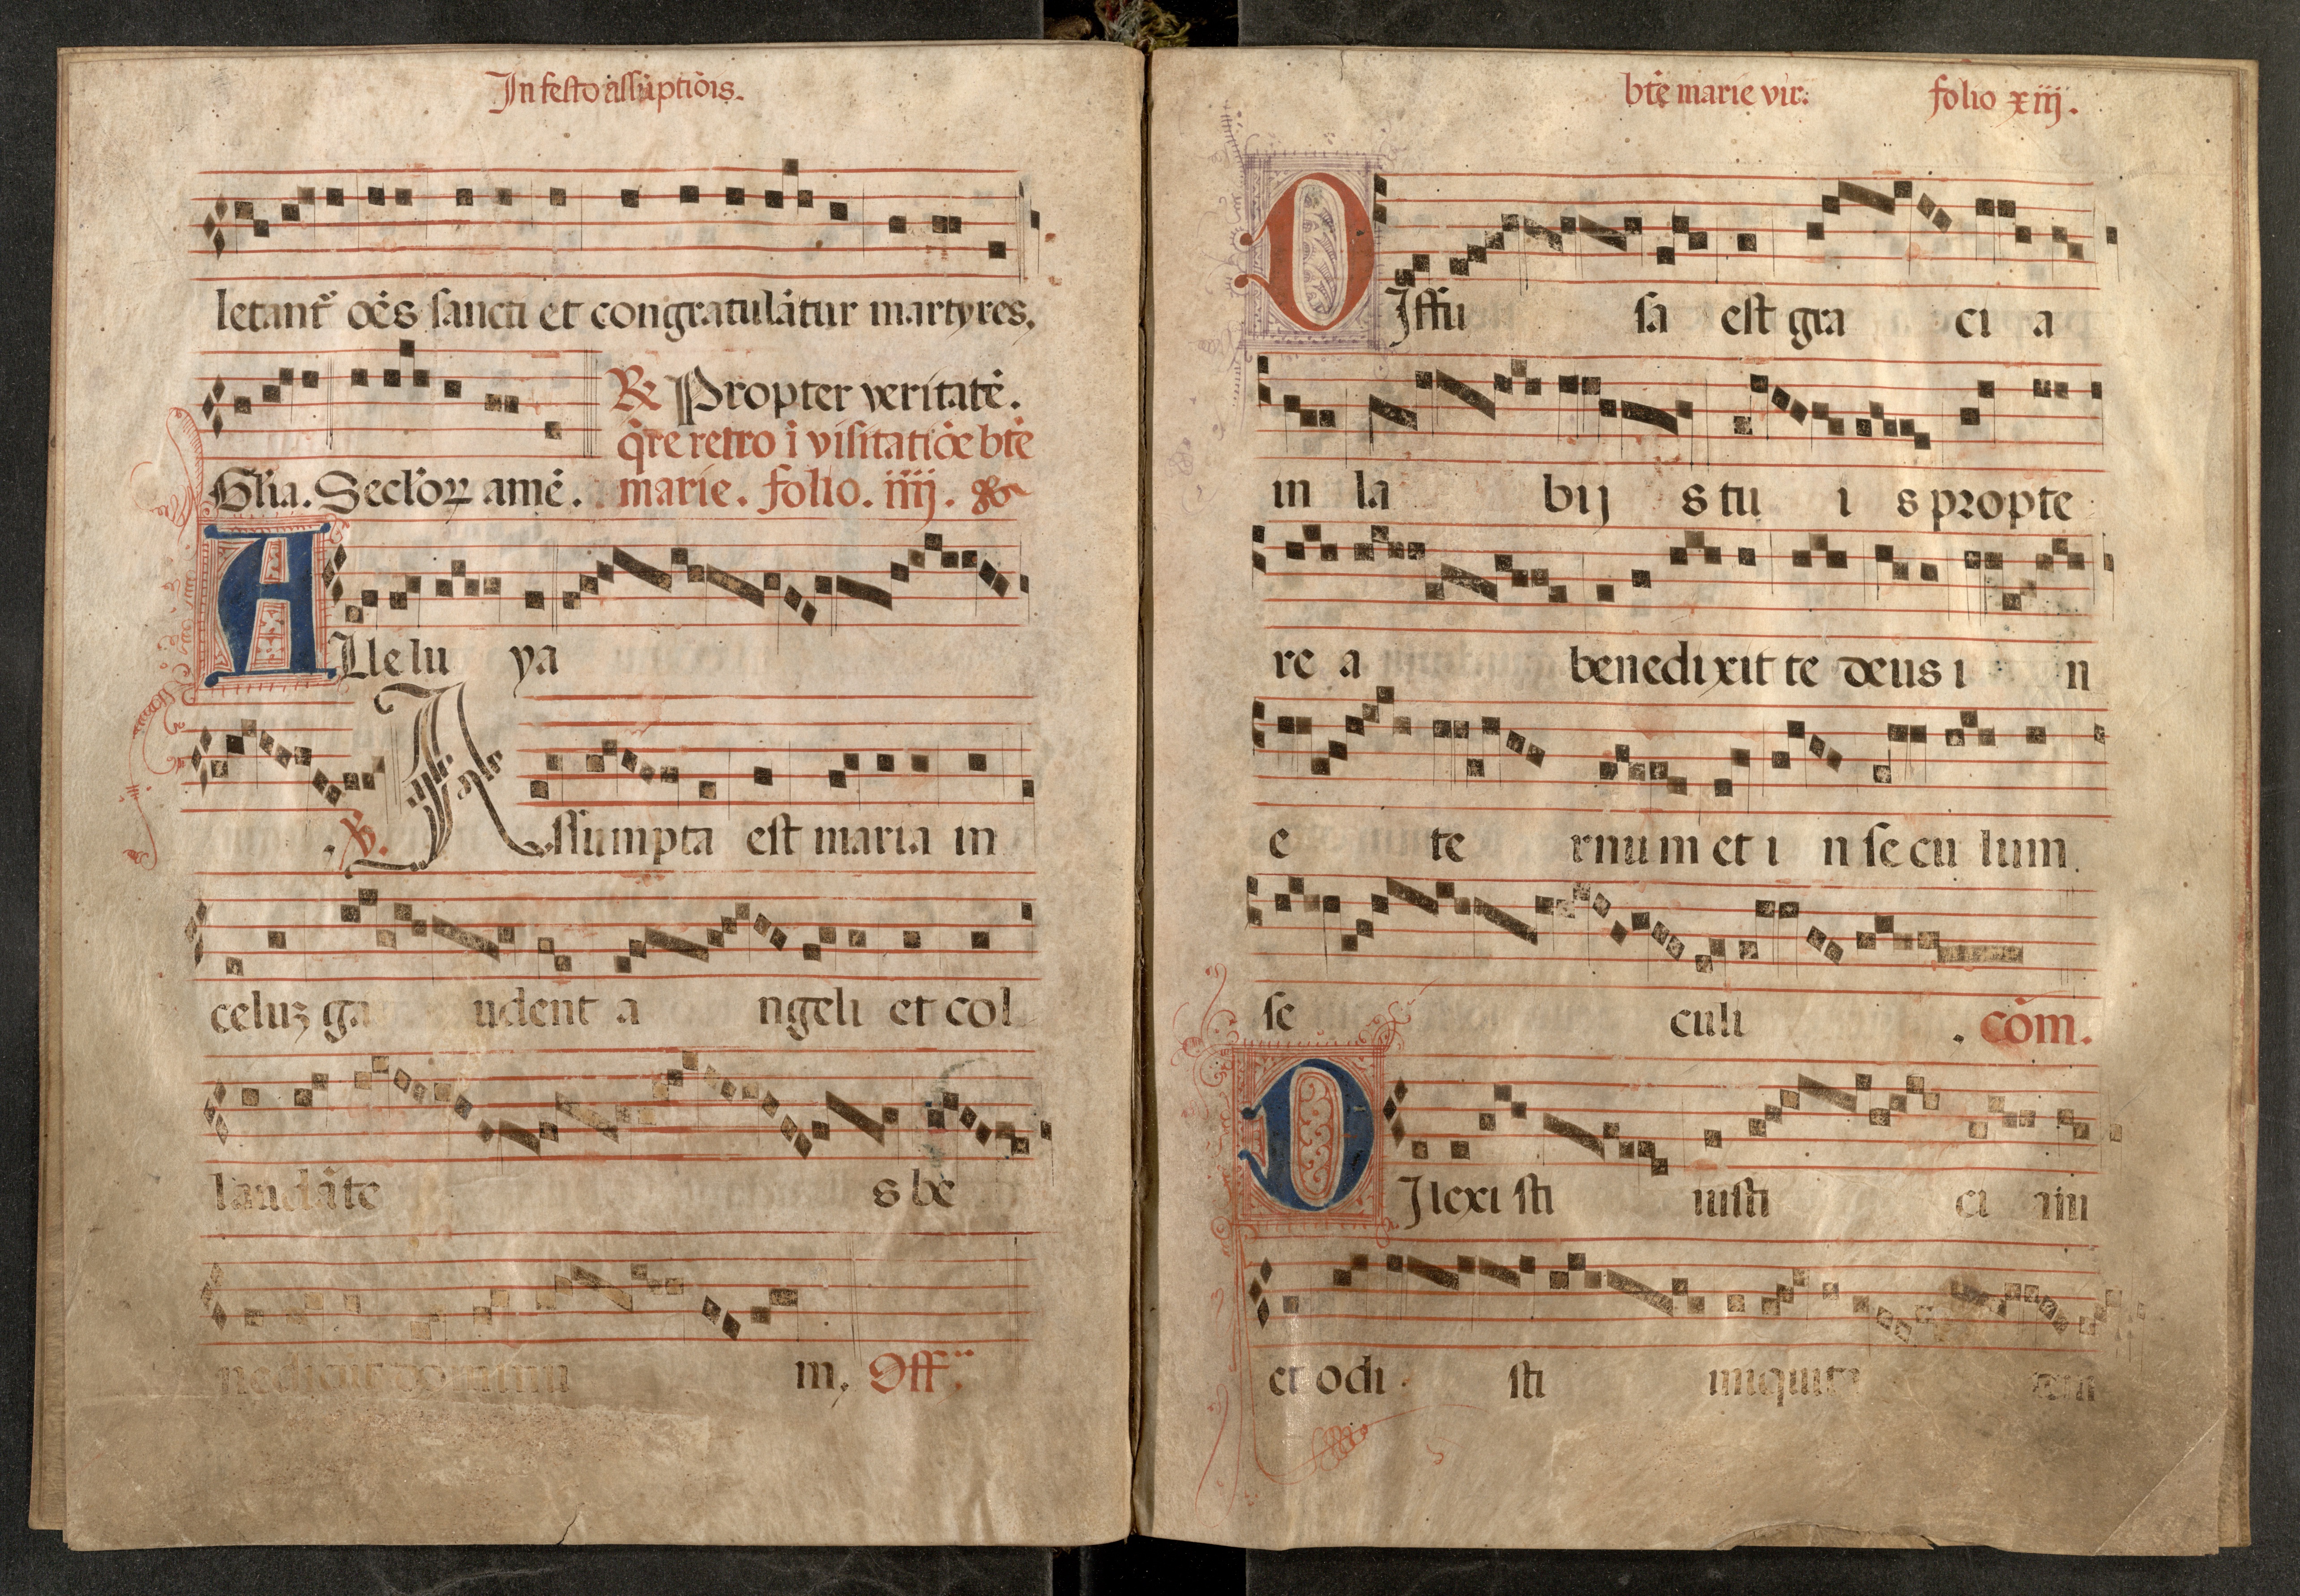 In festo assūptiōis.
letant᷑ oēs sancti et congratulātur martyres.
℟ Propter veritatē.
q̄re retro ī visitatiōe btē
Gl̄ia. Secl̄oꝝ amē. marie. folio. iiij.
ALlelu ya
. ℣. Assumpta est maria in
celuꝫ ga udent a ngeli et col
laudāte s be
nedicut dominu m. Off.
btē marie vir. folio xiij.
DIffu sa est gra ci a
in la bij s tu i s propte
re a benedixit te deus i n
e te rnum et i n secu lum
se culi . cōm.
DIlexi sti iusti ci am
et odi sti iniquita tem